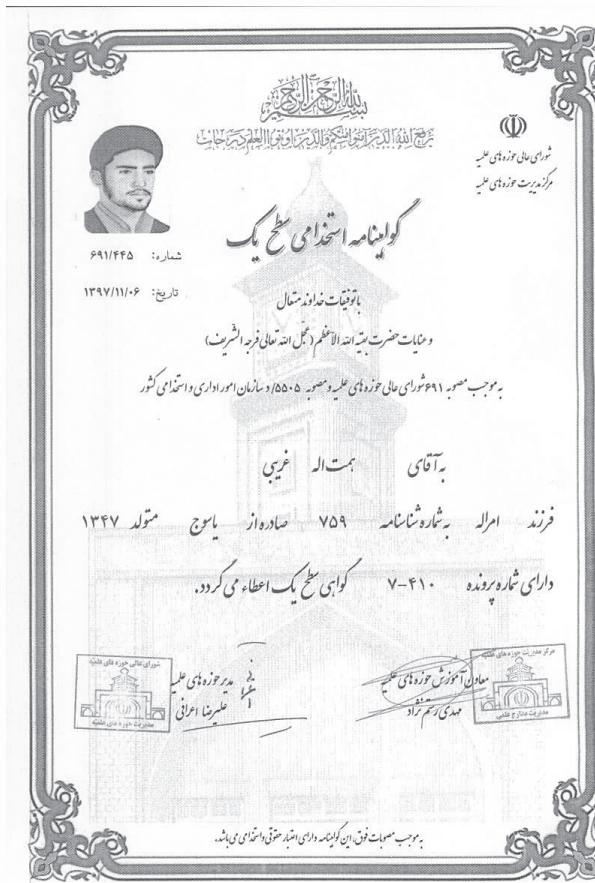 بسم الله الرحمن الرحیم
یرفع الله الذین آمنوا منکم والذین اوتوا العلم درجات
شورای عالی حوزه های علمیه
مرکز مدیریت حوزه های علمیه
گواهینامه استخدامی سطح یک
شماره: ۶۹۱/۴۴۵
تاریخ: ۱۳۹۷/۱۱/۰۶
با توفیقات خداوند متعال
و عنایات حضرت بقیة الله الاعظم (عجل الله تعالی فرجه الشریف)
به موجب مصوبه ۶۹۱ شورای عالی حوزه های علمیه و مصوبه ۵۵۰۵/د سازمان امور اداری و استخدامی کشور
به آقای همت اله غریبی
فرزند امراله به شماره شناسنامه ۷۵۹ صادره از یاسوج متولد ۱۳۴۷
دارای شماره پرونده ۷-۴۱۰ گواهی سطح یک اعطاء می گردد.
مرکز مدیریت حوزه های علمیه
معاون آموزش حوزه های علمیه
مهدی رستم نژاد
مدیریت مدارج علمی
شورای عالی حوزه های علمیه
مدیر حوزه های علمیه
علیرضا اعرافی
مدیریت حوزه های علمیه
به موجب مصوبات فوق، این گواهینامه دارای اعتبار حقوقی و استخدامی می باشد.